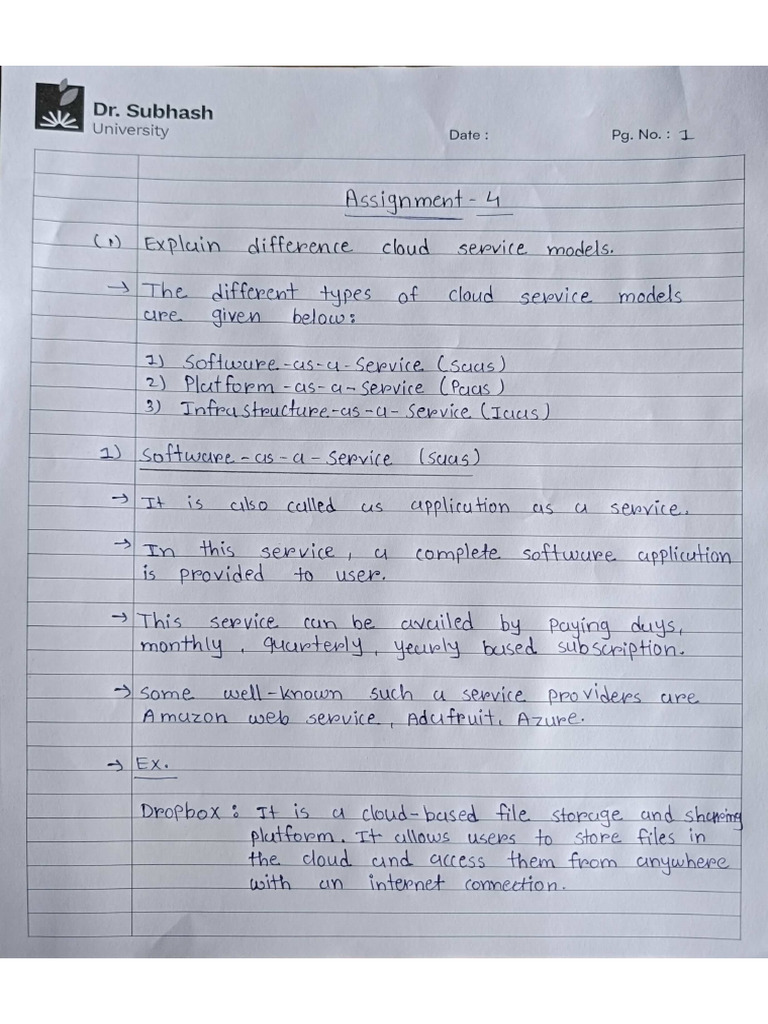 Dr. Subhash
University
Date :
Pg. No. : 1
Assignment - 4
(1) Explain difference cloud service models.
→ The different types of cloud service models
are given below:
1) Software-as-a-Service (Saas)
2) Platform-as-a-Service (Paas)
3) Infrastructure-as-a-Service (Iaas)
1) Software-as-a-Service (Saas)
→ It is also called as application as a service.
→ In this service, a complete software application
is provided to user.
→ This service can be availed by paying days,
monthly, quarterly, yearly based subscription.
→ Some well-known such a service providers are
Amazon web service, Adafruit, Azure.
→ Ex.
Dropbox : It is a cloud-based file storage and shareing
platform. It allows users to store files in
the cloud and access them from anywhere
with an internet connection.